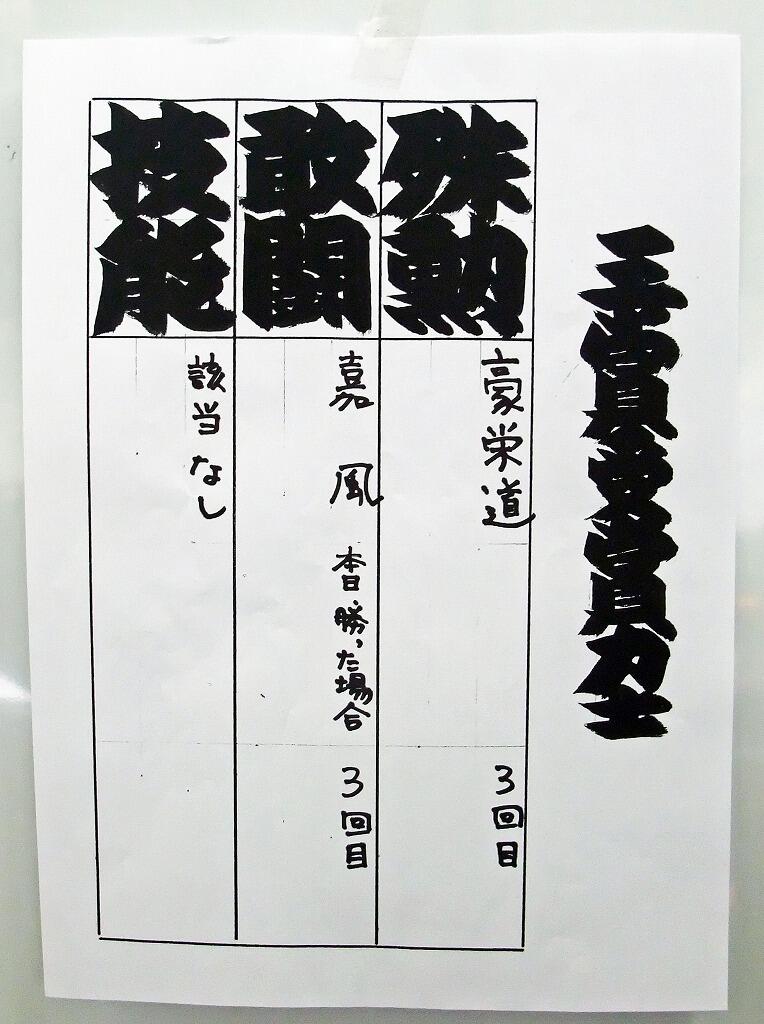 三賞受賞力士
殊勲
豪栄道 3回目
敢闘
嘉風 本日勝った場合 3回目
技能
該当なし